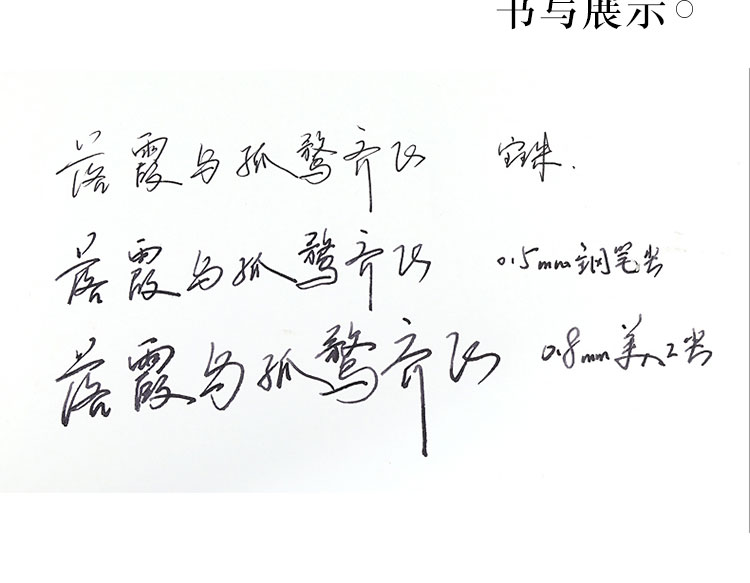 书写展示。
落霞与孤鹜齐飞 宝珠.
落霞与孤鹜齐飞 0.5mm钢笔尖
落霞与孤鹜齐飞 0.8mm美工尖